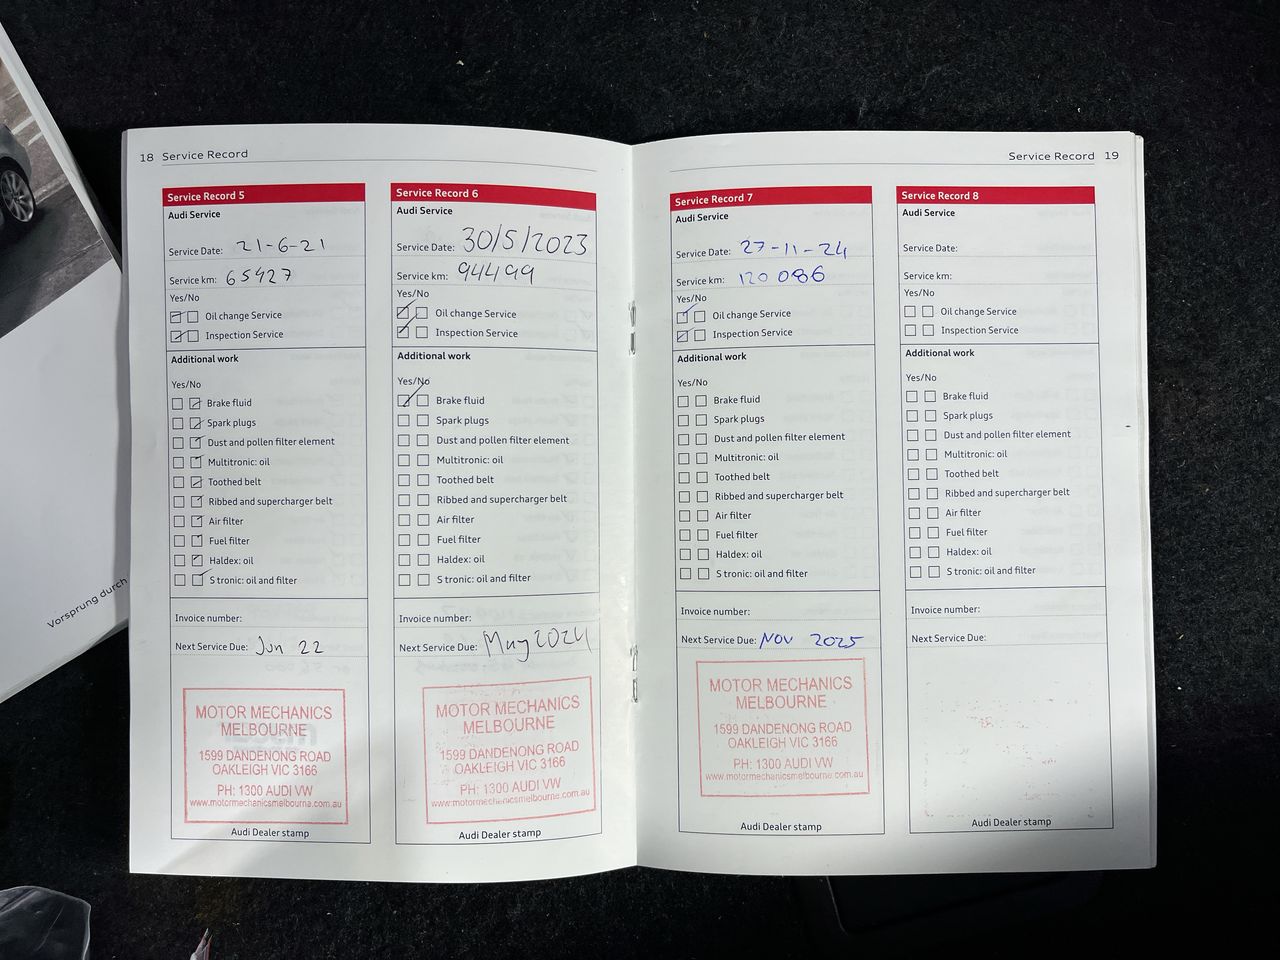 Vorsprung durch
18 Service Record
Service Record 5
Audi Service
Service Date: 21-6-21
Service km: 65427
Yes/No
Oil change Service
Inspection Service
Additional work
Yes/No
Brake fluid
Spark plugs
Dust and pollen filter element
Multitronic: oil
Toothed belt
Ribbed and supercharger belt
Air filter
Fuel filter
Haldex: oil
S tronic: oil and filter
Invoice number:
Next Service Due: Jun 22
MOTOR MECHANICS
MELBOURNE
1599 DANDENONG ROAD
OAKLEIGH VIC 3166
PH: 1300 AUDI VW
www.motormechanicsmelbourne.com.au
Audi Dealer stamp
Service Record 6
Audi Service
Service Date: 30/5/2023
Service km: 94499
Yes/No
Oil change Service
Inspection Service
Additional work
Yes/No
Brake fluid
Spark plugs
Dust and pollen filter element
Multitronic: oil
Toothed belt
Ribbed and supercharger belt
Air filter
Fuel filter
Haldex: oil
S tronic: oil and filter
Invoice number:
Next Service Due: May 2024
MOTOR MECHANICS
MELBOURNE
1599 DANDENONG ROAD
OAKLEIGH VIC 3166
PH: 1300 AUDI VW
www.motormechanicsmelbourne.com.au
Audi Dealer stamp
Service Record 19
Service Record 7
Audi Service
Service Date: 27-11-24
Service km: 120 086
Yes/No
Oil change Service
Inspection Service
Additional work
Yes/No
Brake fluid
Spark plugs
Dust and pollen filter element
Multitronic: oil
Toothed belt
Ribbed and supercharger belt
Air filter
Fuel filter
Haldex: oil
S tronic: oil and filter
Invoice number:
Next Service Due: Nov 2025
MOTOR MECHANICS
MELBOURNE
1599 DANDENONG ROAD
OAKLEIGH VIC 3166
PH: 1300 AUDI VW
www.motormechanicsmelbourne.com.au
Audi Dealer stamp
Service Record 8
Audi Service
Service Date:
Service km:
Yes/No
Oil change Service
Inspection Service
Additional work
Yes/No
Brake fluid
Spark plugs
Dust and pollen filter element
Multitronic: oil
Toothed belt
Ribbed and supercharger belt
Air filter
Fuel filter
Haldex: oil
S tronic: oil and filter
Invoice number:
Next Service Due:
Audi Dealer stamp